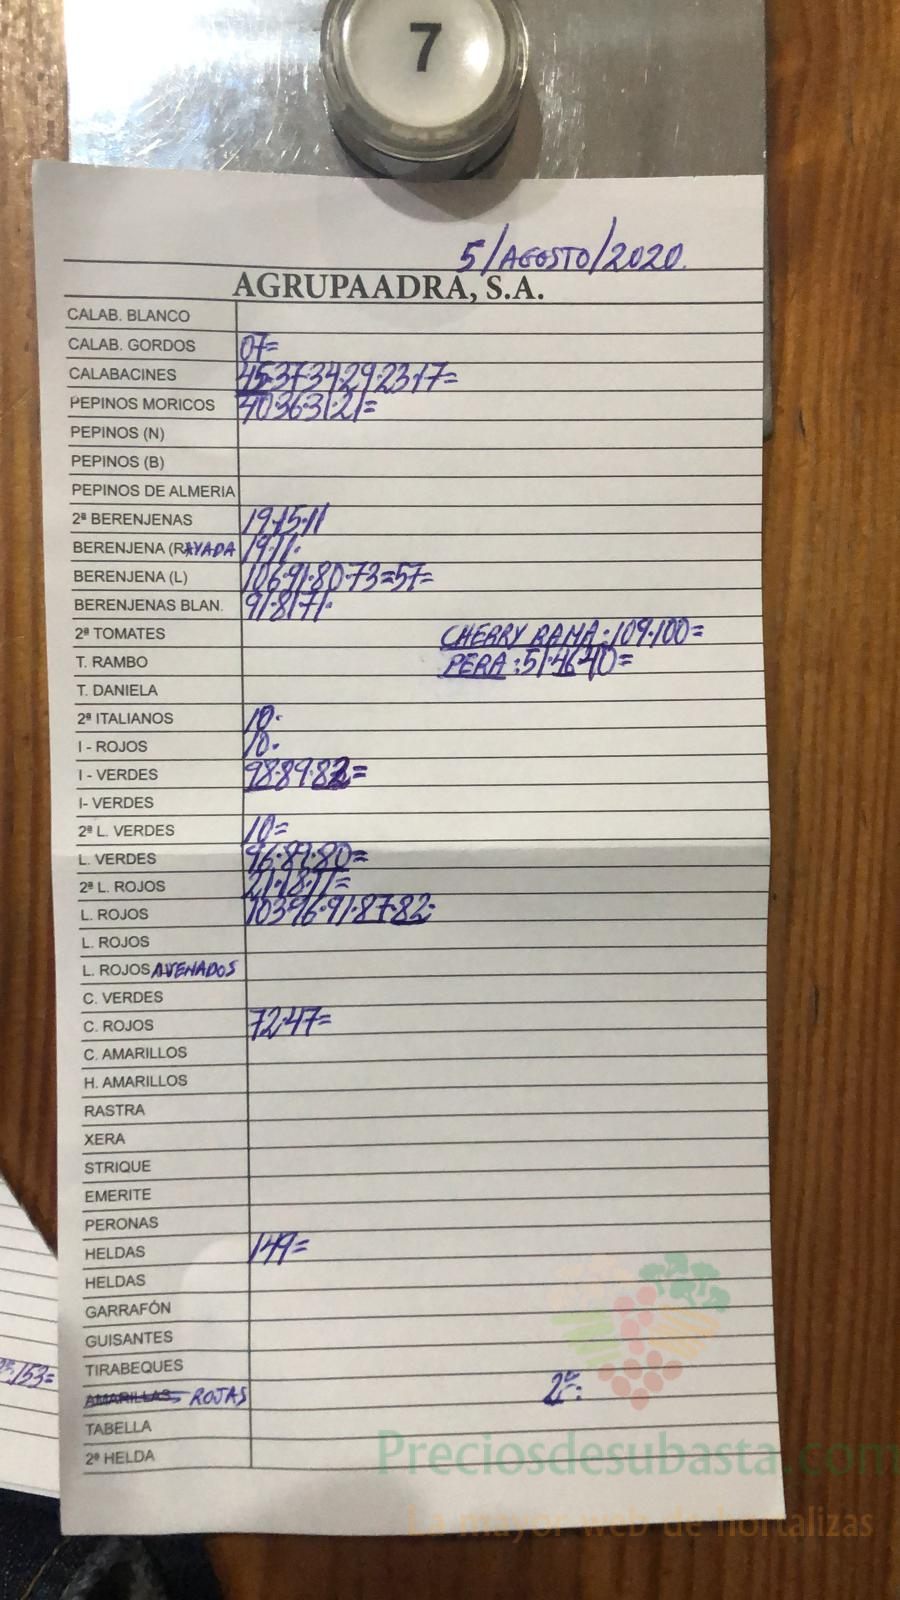 7
5/AGOSTO/2020.
AGRUPAADRA, S.A.
CALAB. BLANCO
CALAB. GORDOS 07=
CALABACINES 45·37·34·29·23·17=
PEPINOS MORICOS 40·36·31·21=
PEPINOS (N)
PEPINOS (B)
PEPINOS DE ALMERIA
2ª BERENJENAS 19·15·11
BERENJENA (RAYADA 19·11·
BERENJENA (L) 106·91·80·73=57=
BERENJENAS BLAN. 91·81·71·
2ª TOMATES CHERRY RAMA: 109·100=
T. RAMBO PERA: 51·46·40=
T. DANIELA
2ª ITALIANOS 10·
I - ROJOS 10·
I - VERDES 98·89·82=
I- VERDES
2ª L. VERDES 10=
L. VERDES 96·89·80=
2ª L. ROJOS 21·18·17=
L. ROJOS 103·96·91·87·82·
L. ROJOS
L. ROJOS AVENADOS
C. VERDES
C. ROJOS 72·47=
C. AMARILLOS
H. AMARILLOS
RASTRA
XERA
STRIQUE
EMERITE
PERONAS
HELDAS 149=
HELDAS
GARRAFÓN
GUISANTES
TIRABEQUES
153=
AMARILLAS ROJAS
TABELLA
2ª HELDA
Preciosdesubasta.com
La mayor web de hortalizas